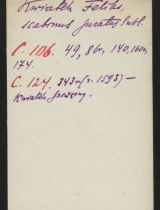 Kwiatek Feliks,
scabinus juratus Lubl.
C. 116. 49, 86v, 140, 160v,
174.
C. 124. 343v (r. 1593) —
Kwiatek